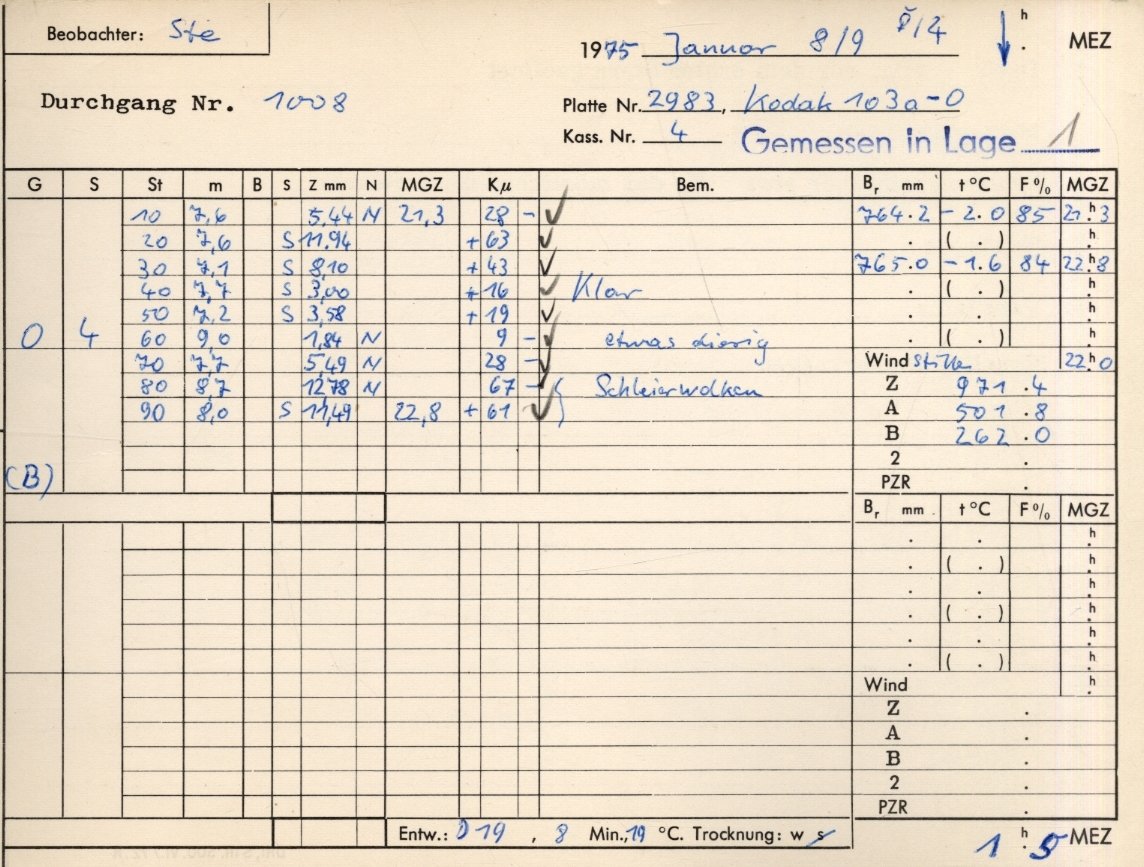 Beobachter: Ste
1975 Januar 8/9 h . MEZ
Durchgang Nr. 1008
Platte Nr. 2983, Kodak 103a-O
Kass. Nr. 4 Gemessen in Lage 1
G S St m B S Z mm N MGZ Kμ Bem. Br mm t °C F % MGZ
10 7,6 5,44 N 21,3 28 - 764.2 -2.0 85 21h.3
20 7,6 S 11.94 +63 . ( . ) h.
30 7,1 S 8,10 +43 765.0 -1.6 84 22h.8
40 7,7 S 3,00 +16 Klar . ( . ) h.
50 7,2 S 3,58 +19 . . h.
0 4 60 9,0 1,84 N 9 - etwas diesig . ( . ) h.
70 7,7 5,49 N 28 - Wind stille 22h.0
80 8,7 12,78 N 67 - Schleierwolken Z 971.4
90 8,0 S 11,49 22,8 +61 A 501.8
B 262.0
(B) 2 .
PZR .
Br mm t °C F % MGZ
. . h.
. ( . ) h.
. . h.
. ( . ) h.
. . h.
. ( . ) h.
Wind h.
Z .
A .
B .
2 .
PZR .
Entw.: D19, 8 Min., 19 °C. Trocknung: w s
1 h. 5 MEZ